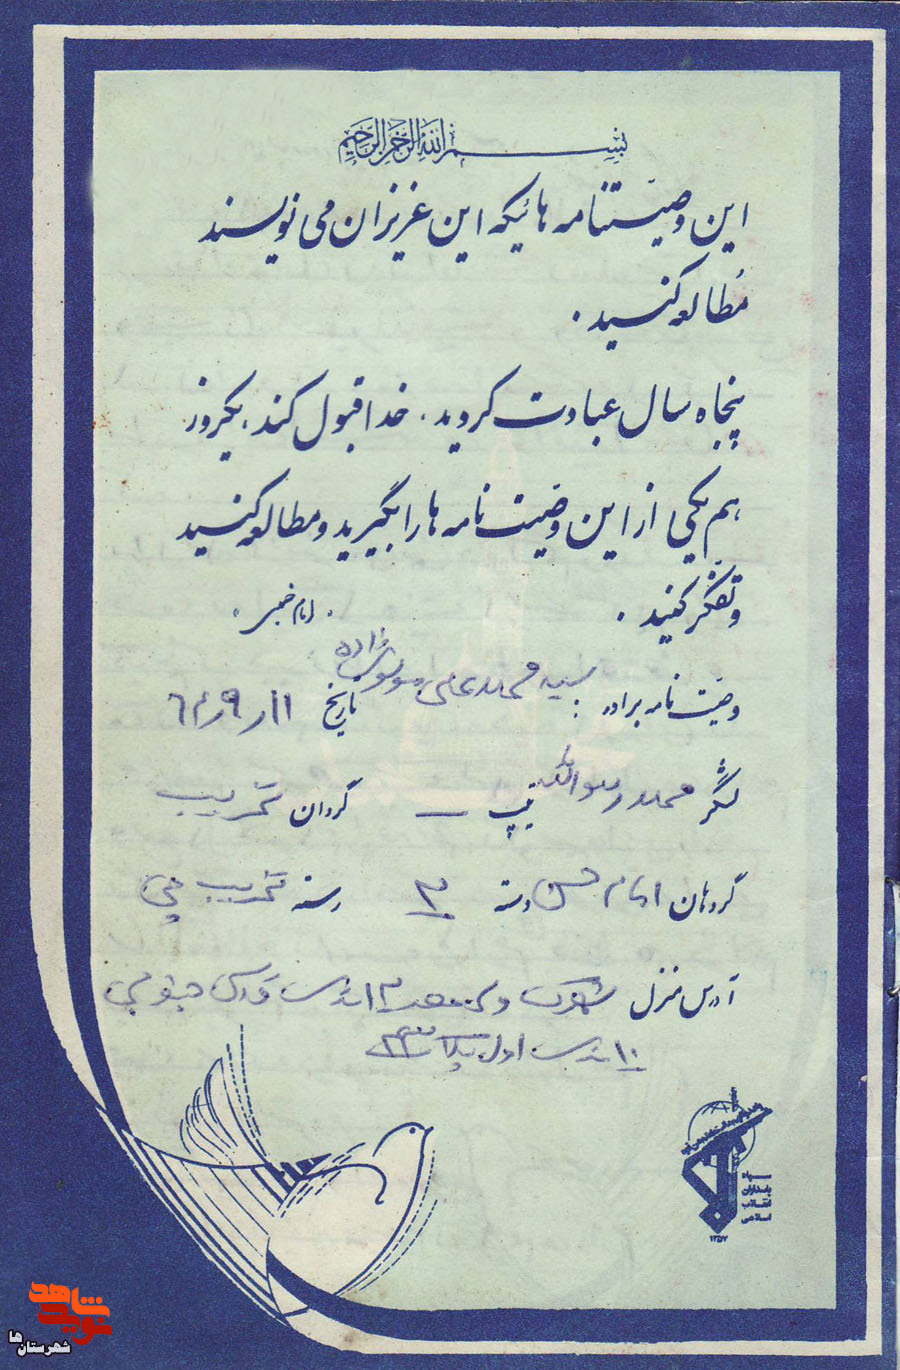 بسم الله الرحمن الرحیم
این وصیّتنامه هائیکه این عزیزان می نویسند
مُطالعه کنید.
پنجاه سال عبادت کردید. خدا قبول کند، یکروز
هم یکی از این وصیّت نامه ها را بگیرید و مطالعه کنید
و تفکّر کنید.
امام خمینی
وصیّت نامه برادر: سید محمد علی موسوی زاده تاریخ ۱۱ر۹ر۶۲
لشگر محمد رسول الله تیپ — گردان تخریب
گروهان امام حسن دسته ۳ رسته تخریب چی
آدرس منزل شهرک ولیعصر متری جنوبی
۱۰ متری اول پلاک
سپاه
پاسداران
انقلاب
اسلامی
۱۳۵۷
نوید شاهد
شهرستان ها